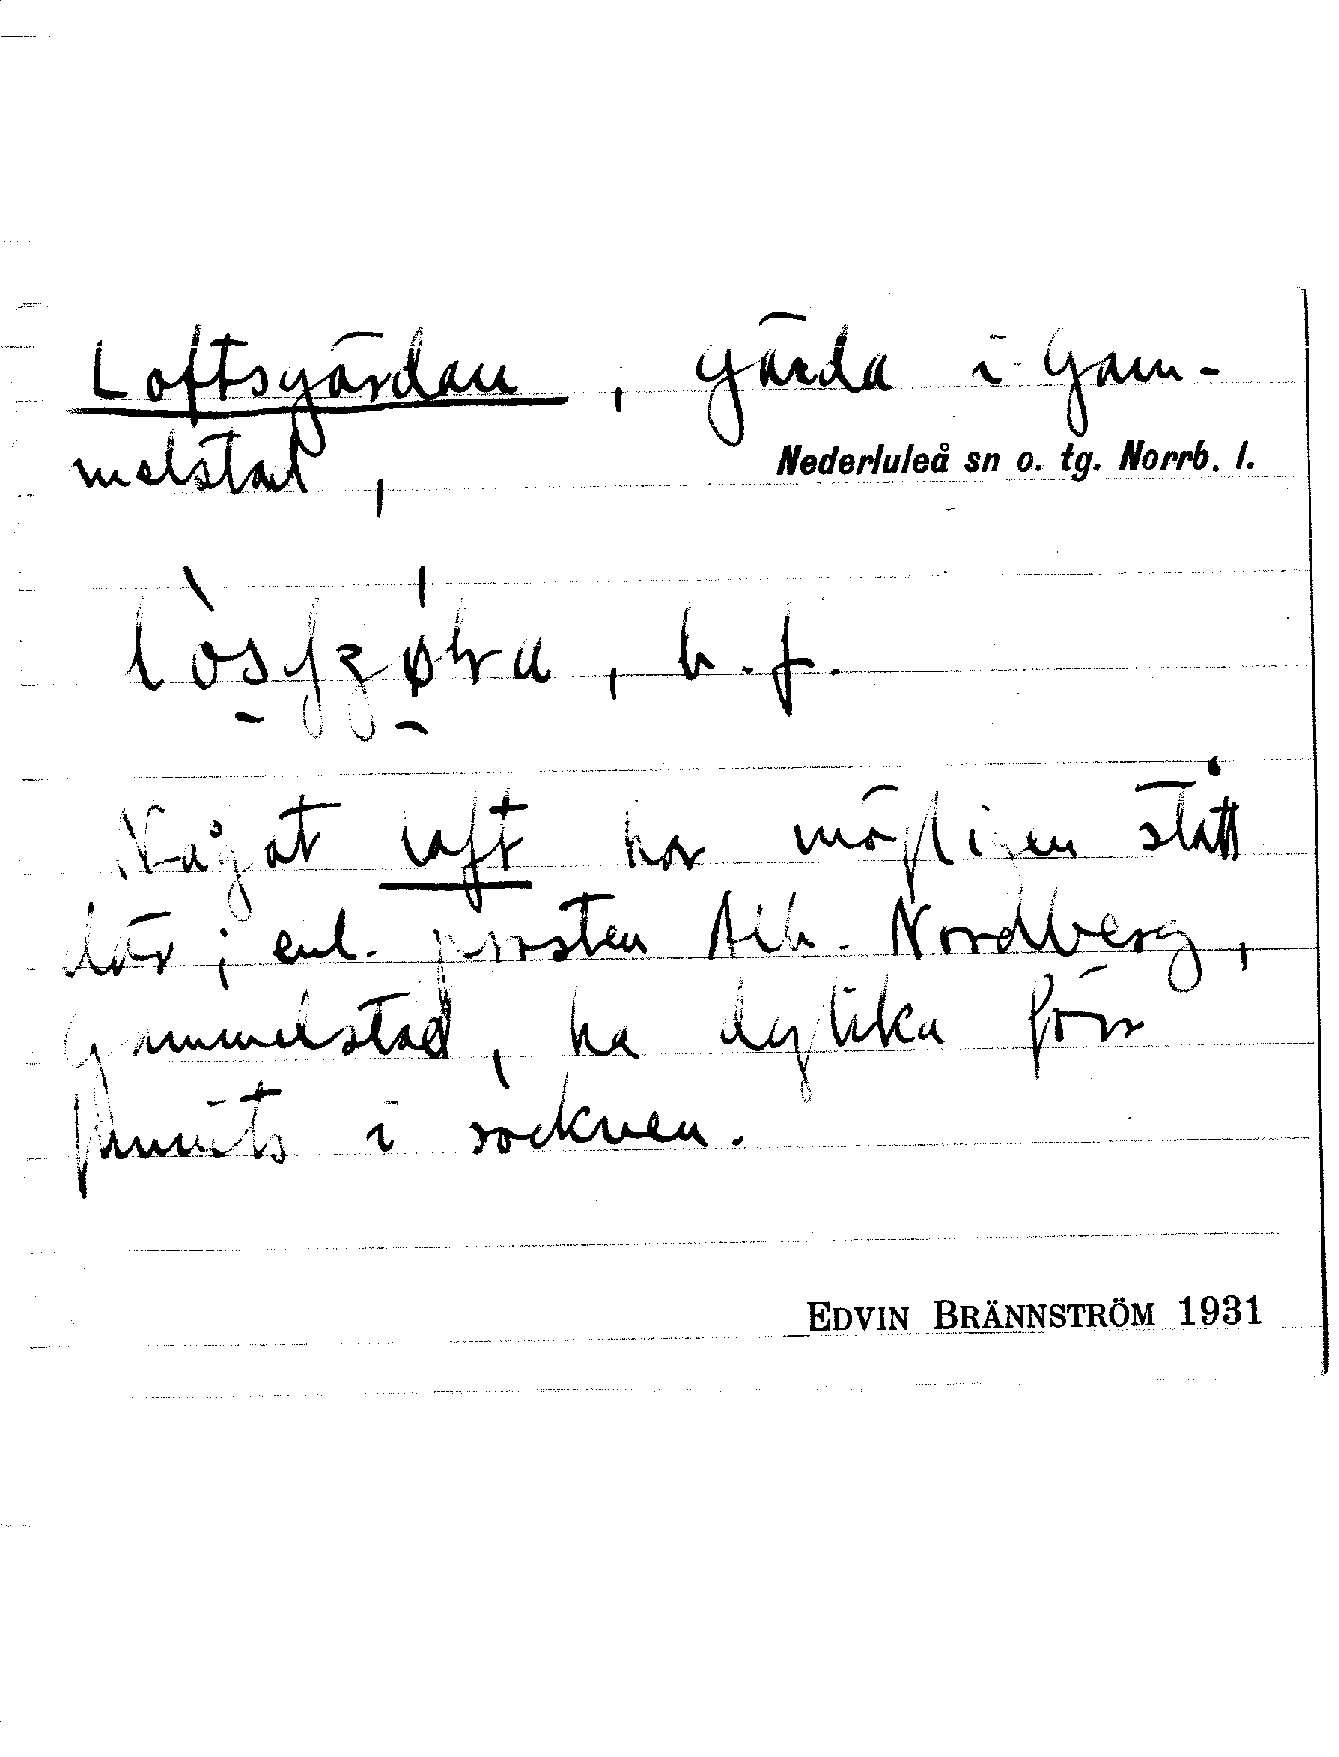 Loftsgärdan, gärda i Gam-
melstad,
Nederluleå sn o. tg. Norrb. l.
b. f.
Något loft har möjligen stått
där; enl. prosten Alb. Nordberg,
Gammelstad, ha dylika förr
funnits i socknen.
EDVIN BRÄNNSTRÖM 1931